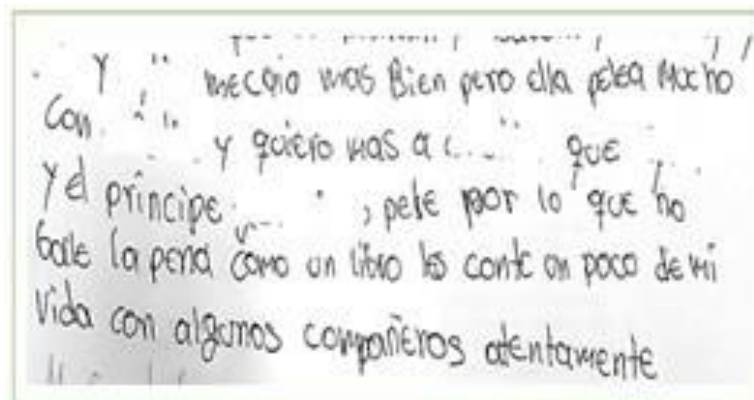 Y mecaio mas Bien pero ella pelea Mocho
Con y quiero mas a que
y el principe , pele por lo que no
bale la pena como un libro les conte un poco de mi
Vida con algunos compañeros atentamente